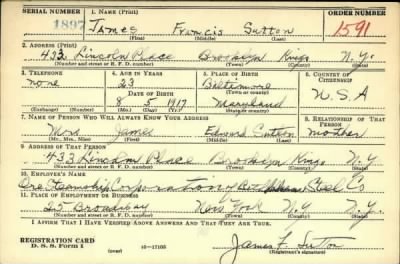 SERIAL NUMBER 1. NAME (Print) ORDER NUMBER
1897 James Francis Sutton 1591
2. ADDRESS (Print)
433 Lincoln Place Brooklyn Kings N.Y.
(Number and street or R. F. D. number) (Town) (County) (State)
3. TELEPHONE 4. AGE IN YEARS 5. PLACE OF BIRTH 6. COUNTRY OF CITIZENSHIP
none 23 Baltimore
DATE OF BIRTH (Town or county)
8 5 1917 Maryland U.S.A
(Exchange) (Number) (Mo.) (Day) (Yr.) (State or country)
7. NAME OF PERSON WHO WILL ALWAYS KNOW YOUR ADDRESS 8. RELATIONSHIP OF THAT PERSON
Mrs James Edward Sutton mother
(Mr., Mrs., Miss) (First) (Middle) (Last)
9. ADDRESS OF THAT PERSON
433 Lincoln Place Brooklyn Kings N.Y.
(Number and street or R. F. D. number) (Town) (County) (State)
10. EMPLOYER'S NAME
Ore Steamship Corporation Bethlehem Steel Co
11. PLACE OF EMPLOYMENT OR BUSINESS
25 Broadway New York N.Y. N.Y.
(Number and street or R. F. D. number) (Town) (County) (State)
I AFFIRM THAT I HAVE VERIFIED ABOVE ANSWERS AND THAT THEY ARE TRUE.
REGISTRATION CARD
D. S. S. Form 1 (over) 16—17105 James F. Sutton
(Registrant's signature)